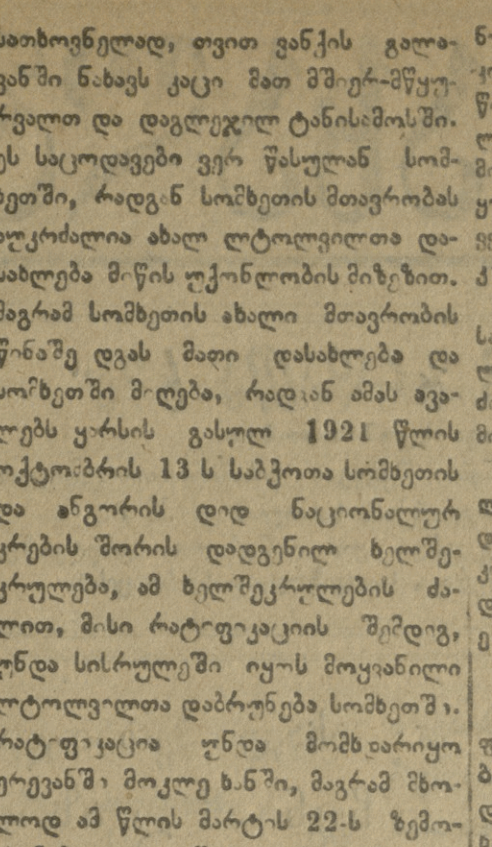 სათხოვნელად, თვით ვანქის გალა-
ვანში ნახავს კაცი მათ მშიერ-მწყუ-
რვალთ და დაგლეჯილ ტანისამოსში.
ეს საცოდავები ვერ წასულან სომ-
ხეთში, რადგან სომხეთის მთავრობას
აუკრძალია ახალ ლტოლვილთა და-
სახლება მიწის უქონლობის მიზეზით.
მაგრამ სომხეთის ახალი მთავრობის
წინაშე დგას მათი დასახლება და
სომხეთში მიღება, რადგან ამას ავა-
ლებს ყარსის გასულ 1921 წლის
ოქტომბრის 13 ს საბჭოთა სომხეთის
და ანგორის დიდ ნაციონალურ
კრების შორის დადგენილ ხელშე-
კრულება, ამ ხელშეკრულების ძა-
ლით, მისი რატიფიკაციის შემდიგ,
უნდა სისრულეში იყოს მოყვანილი
ლტოლვილთა დაბრუნება სომხეთში.
რატიფიკაცია უნდა მომხდარიყო
ერევანში მოკლე ხანში, მაგრამ მხო-
ლოდ ამ წლის მარტის 22-ს ზემო-